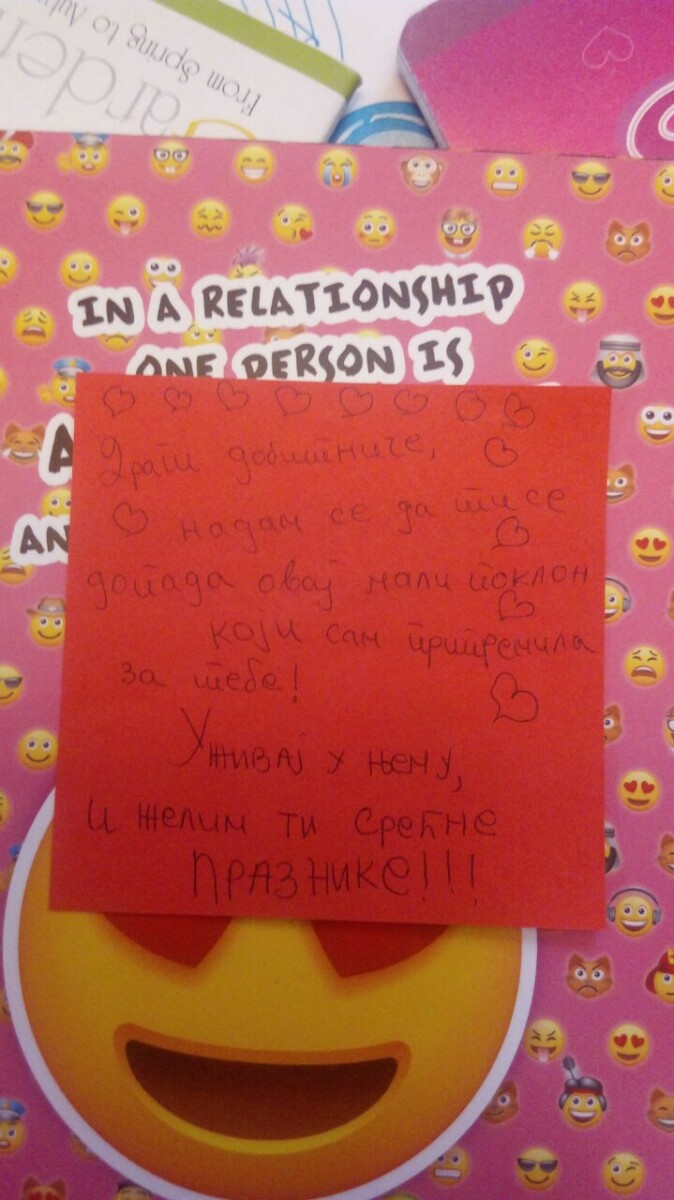 arden
From Spring to Autu
IN A RELATIONSHIP
ONE PERSON IS
A
AN
Драги добитниче,
надам се да ти се
допада овај мали поклон
који сам припремила
за тебе!
Уживај у њему,
и желим ти срећне
ПРАЗНИКЕ!!!